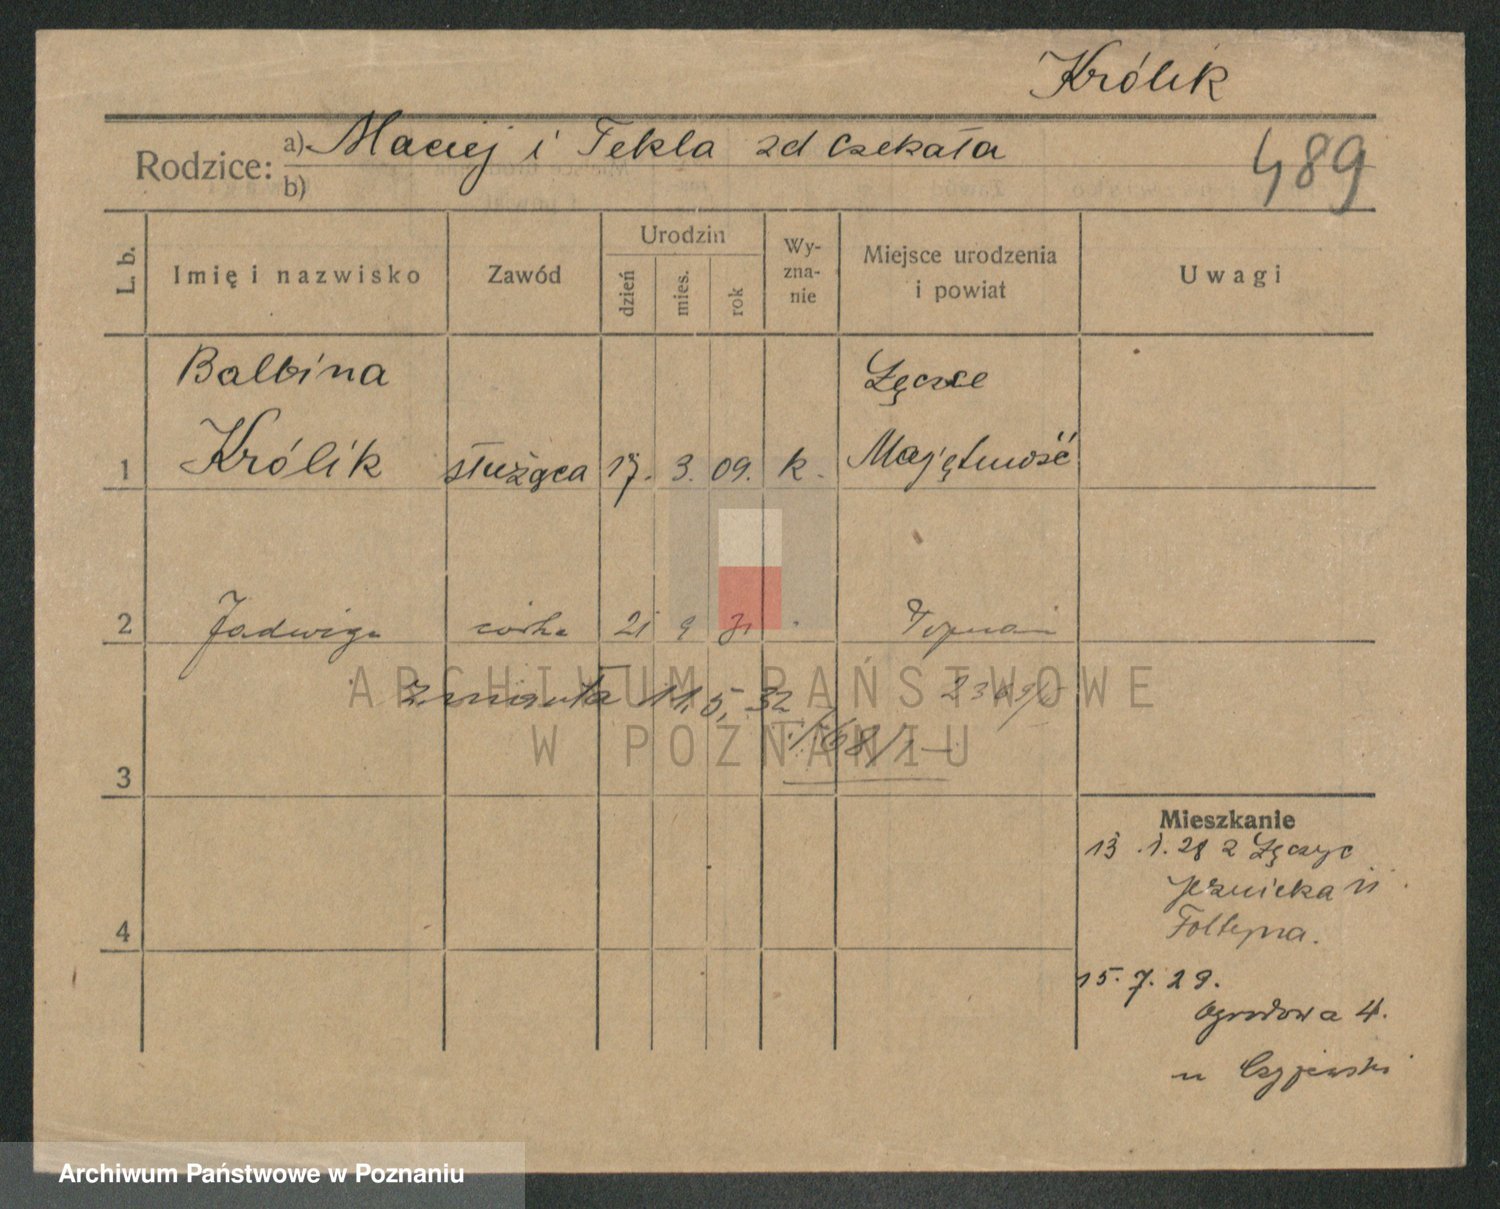 Królik
Rodzice: a) Maciej i Tekla zd Czekała
b)
489
L. b.
Imię i nazwisko
Zawód
Urodzin
dzień
mies.
rok
Wy-
zna-
nie
Miejsce urodzenia
i powiat
Uwagi
Balbina
Łęczce
1 Królik służąca 17. 3. 09. k. Majętność
2 Jadwiga córka 21 9 31 Poznań
zmarła 11. 5. 32
768/1
3
Mieszkanie
13.1.28 z Łęczyc
Jeżnicka
Foltyna.
4
15.7.29.
Ogrodowa 4.
u Czyżewski
ARCHIWUM PAŃSTWOWE
W POZNANIU
Archiwum Państwowe w Poznaniu